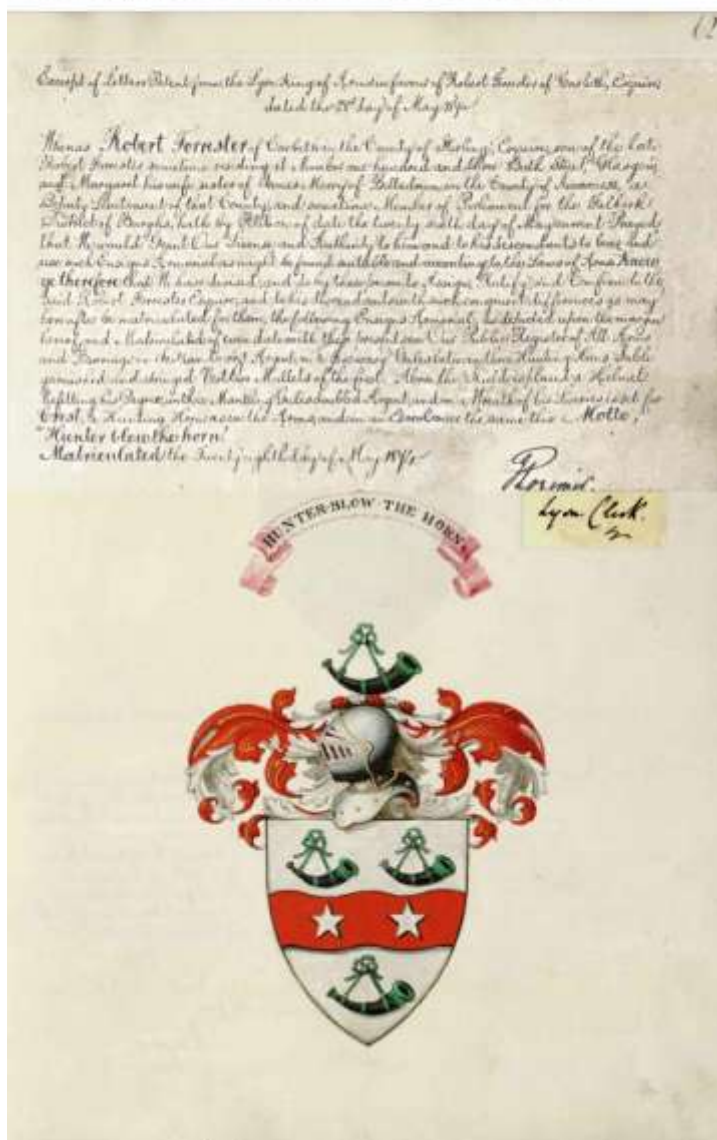 Extract of Letters Patent from the Lyon King of Arms in favour of Robert Forrester of Esquire,
dated the 28th day of May
Whereas Robert Forrester of in the County of Stirling, Esquire, son of the late
Robert Forrester sometime residing at Number one hundred and Bath Street, Glasgow,
and Margaret his wife sister of James Merry of in the County of a
Deputy Lieutenant of that County, and sometime Member of Parliament for the Falkirk
District of Burghs, hath by Petition of date the twenty sixth day of May current Prayed
that We would Grant Our Licence and Authority to him and to his descendants to bear and
use such Ensigns Armorial as might be found suitable and according to the Laws of Arms Know
ye therefore that We have devised, and do by these presents Assign, Ratify and Confirm to the
said Robert Forrester Esquire, and to his descendants with such congruent differences as may
hereafter be matriculated for them, the following Ensigns Armorial, as depicted upon the margin
hereof, and Matriculated of even date with these presents in Our Public Register of All Arms
and Bearings in Scotland, Argent, a Gules between three Hunting Horns Sable
garnished and stringed Vert two Mullets of the first. Above the Shield is placed a Helmet
befitting his Degree, with a Mantling Gules doubled Argent, and on a Wreath of his Liveries is set for
Crest, a Hunting Horn as in the Arms, and in an Escrol over the same this Motto,
"Hunter blow the horn."
Matriculated the Twenty eighth day of May
Lyon Clerk.
HUNTER·BLOW·THE HORN